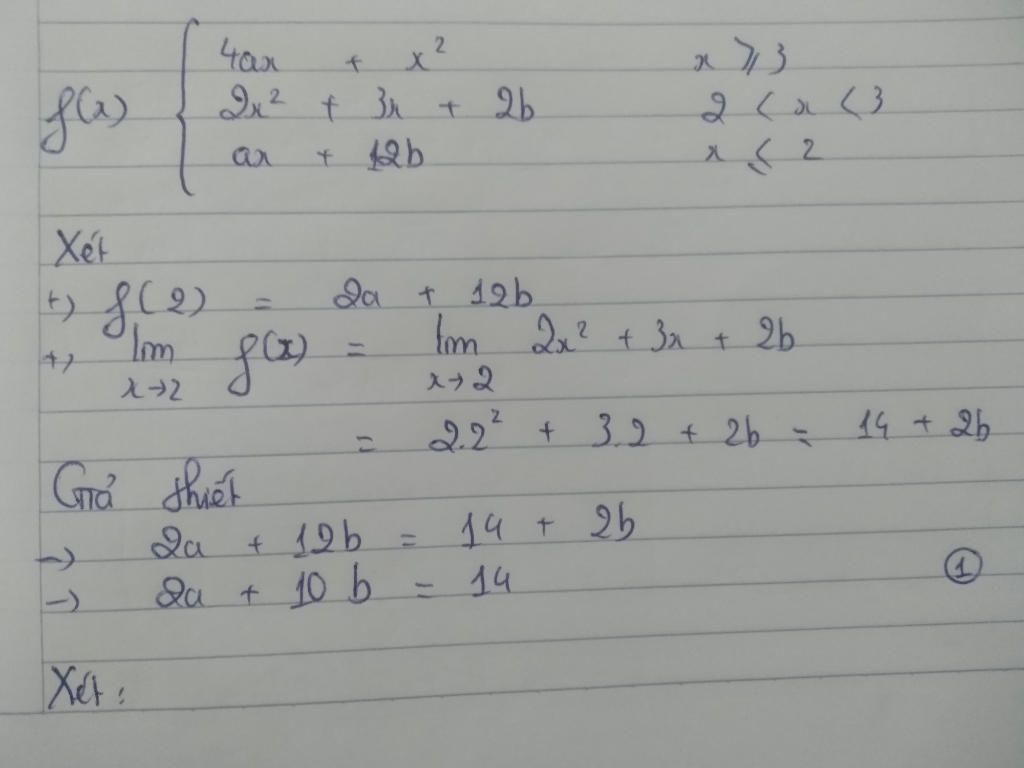 f(x) { 4ax + x² x ⩾ 3
2x² + 3x + 2b 2 < x < 3
ax + 12b x ⩽ 2
Xét
+) f(2) = 2a + 12b
+) lim f(x) = lim 2x² + 3x + 2b
x→2 x→2
= 2.2² + 3.2 + 2b = 14 + 2b
Giả thiết
→ 2a + 12b = 14 + 2b
→ 2a + 10b = 14 ①
Xét :